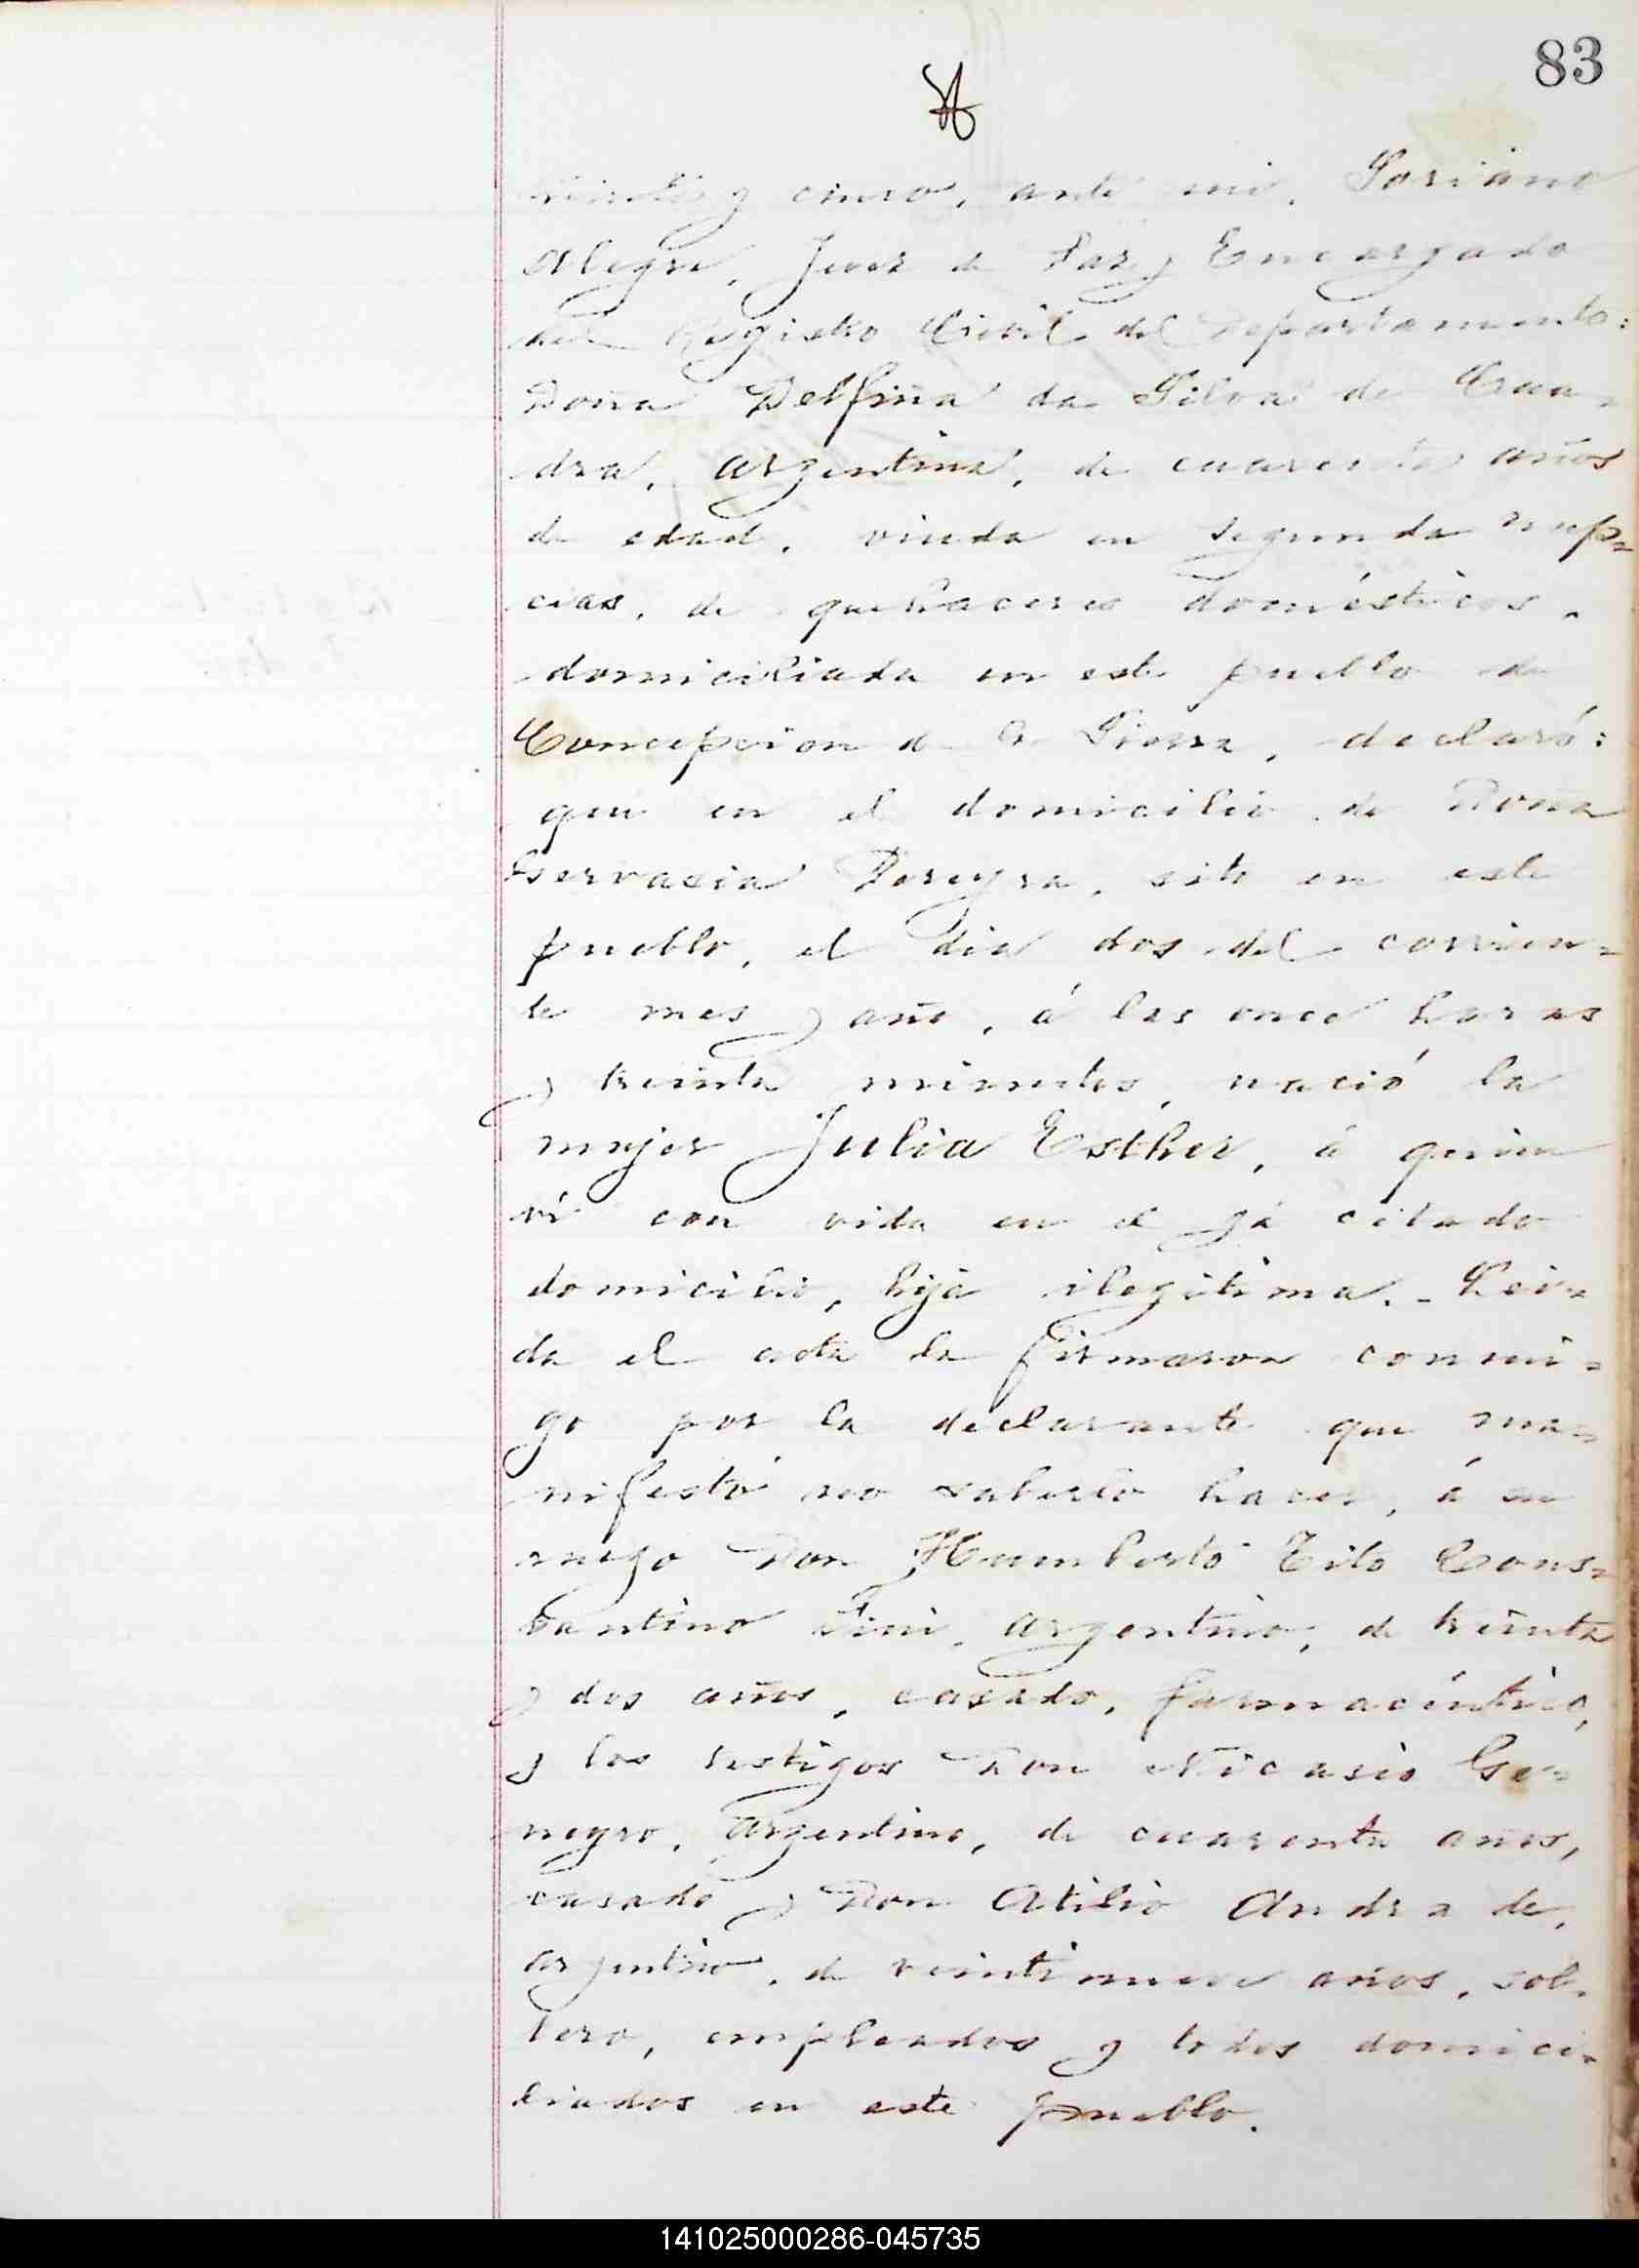 83
veinte y cinco, ante mi, Soriano
Alegre, Juez de Paz y Encargado
del Registro Civil del Departamento:
Doña Delfina da Silva de Cua-
dra, argentina, de cuarenta años
de edad, viuda en segunda nup-
cias, de quehaceres domésticos,
domiciliada en este pueblo de
Concepcion de la Sierra, declaró:
que en el domicilio de Doña
Gervasia Pereyra, sito en este
pueblo, el dia dos del corrien-
te mes y año, á las once horas
y treinta minutos, nació la
mujer Julia Esther, á quien
ví con vida en el yá citado
domicilio, hija ilegítima.- Lei-
da el acta la firmaron conmi-
go por la declarante que ma-
nifestó no saberlo hacer, á su
ruego Don Humberto Tito Cons-
tantino Fini, argentino, de treinta
y dos años, casado, farmacéutico,
y los testigos Don Nicasio Ge-
negro, argentino, de cuarenta años,
casado y Don Atilio Andrade,
argentino, de veintinueve años, sol-
tero, empleados y todos domici-
liados en este pueblo.
141025000286-045735